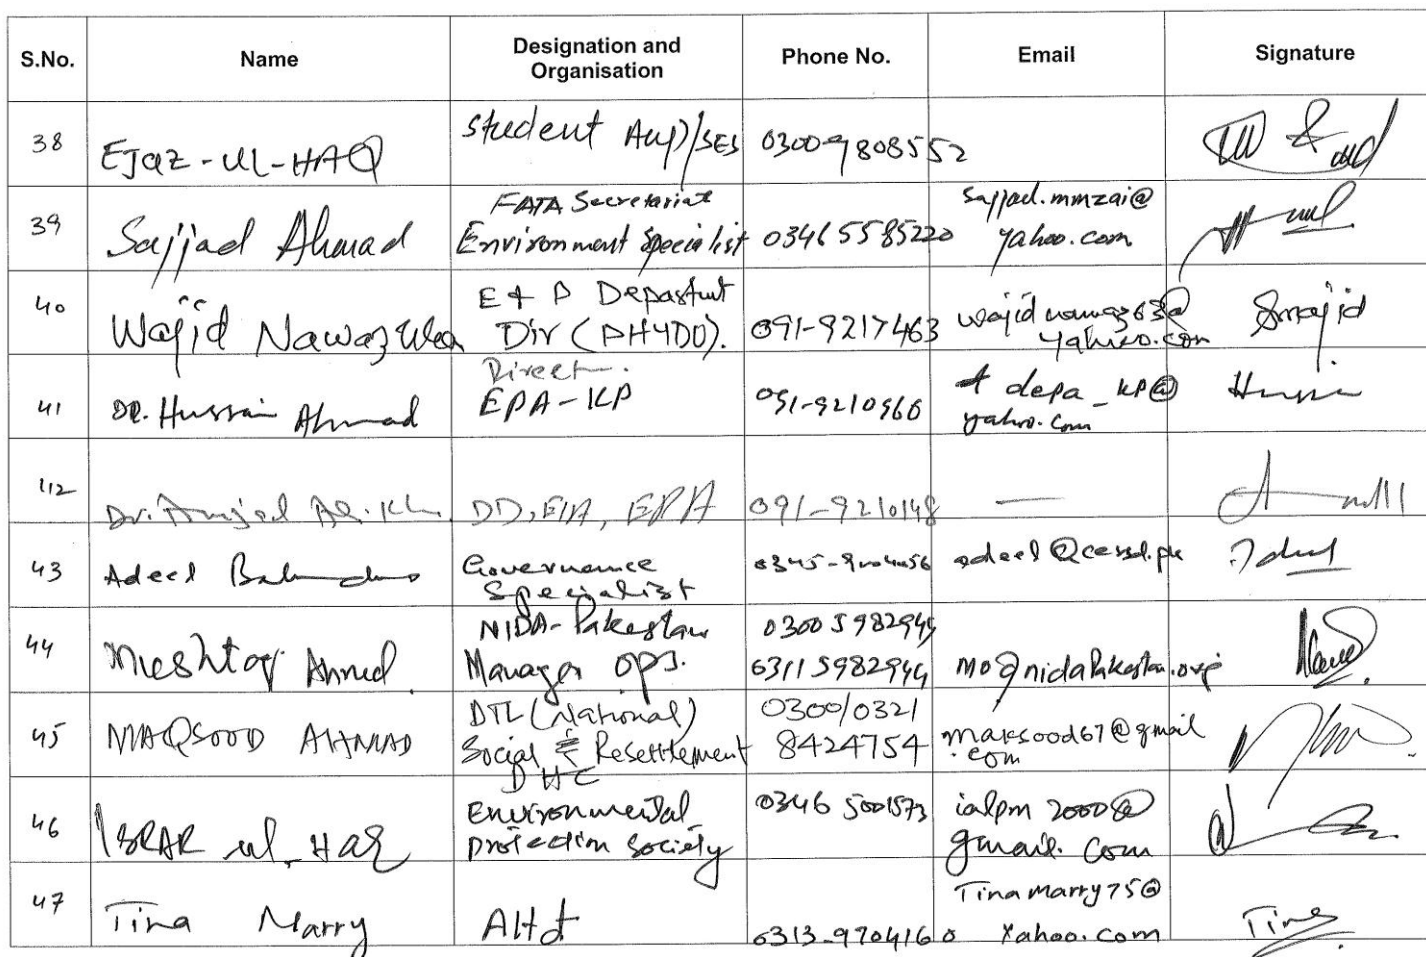 S.No. Name Designation and Organisation Phone No. Email Signature
38 Ejaz-ul-HAQ student AUP/SES 03009808552
39 Sajjad Ahmad FATA Secretariat Environment Specialist 03465585220 sajjad.mmzai@yahoo.com
40 Wajid Nawaz E & P Dir (PHYDO). 091-9217463 yahoo.com
41 DR. Hussain Ahmad Direct EPA-KP depa_kp@yahoo.com
42 Dr. Amjad Ali Kh DD, EIA, EPA 091-9210148 —
43 Adeel Governance Specialist adeel@cessd.pk
44 Mushtaq Ahmed. NIDA-Pakistan Manager ops. 03005982944 03115982944 mo@nidapakistan.org
45 MAQSOOD AHMAD DTL (National) Social & Resettlement DHC 0300/0321 8424754 maksood67@gmail.com
46 ISRAR ul-HAQ Environmental Protection Society 0346 5001573 ialpm2000@gmail.com
47 Tina Marry 0313-9704160 Tinamarry75@yahoo.com Tina